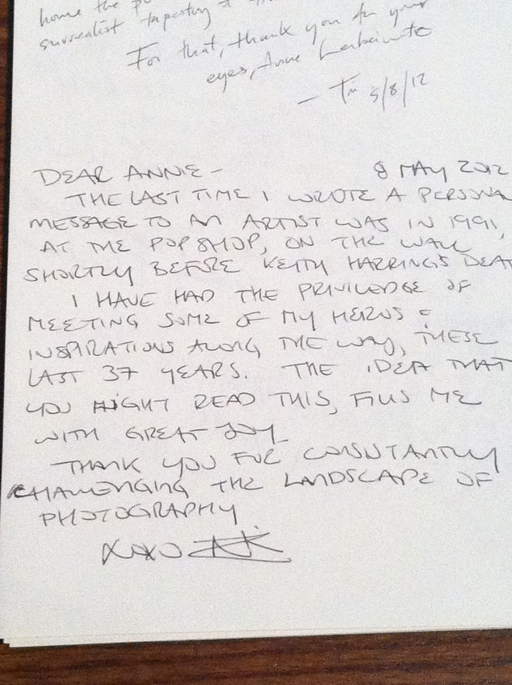 home the
surrealist tapestry
For that, thank you for your
eyes, Anne Leibovitz
- Tm 5/8/12
DEAR ANNIE - 8 MAY 2012
THE LAST TIME I WROTE A PERSONA
MESSAGE TO AN ARTIST WAS IN 1991,
AT THE POP SHOP, ON THE WALL
SHORTLY BEFORE KEITH HARRING'S DEAT
I HAVE HAD THE PRIVILEDGE OF
MEETING SOME OF MY HEROS &
INSPIRATIONS ALONG THE WAY, THESE
LAST 37 YEARS. THE IDEA THAT
YOU MIGHT READ THIS, FILLS ME
WITH GREAT JOY
THANK YOU FOR CONSTANTLY
CHALLENGING THE LANDSCAPE OF
PHOTOGRAPHY
XOXO